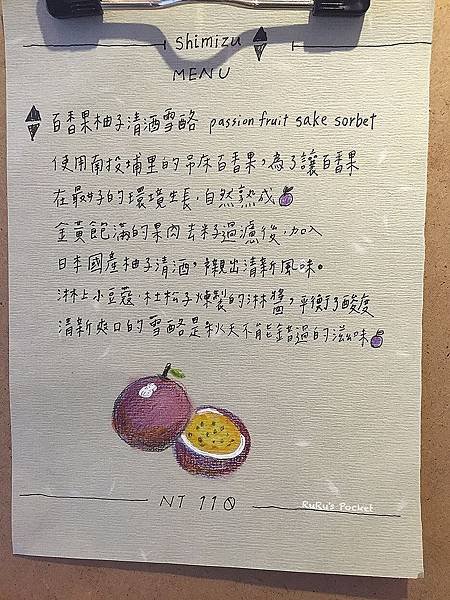 shimizu
MENU
百香果柚子清酒雪酪 passion fruit sake sorbet
使用南投埔里的吊床百香果，為了讓百香果
在最好的環境生長，自然熟成
金黃飽滿的果肉去籽過濾後，加入
日本國產柚子清酒，襯出清新風味。
淋上小豆蔻、杜松子煉製的淋醬，平衡了酸度
清新爽口的雪酪是秋天不能錯過的滋味
NT 110
RuRu's Pocket